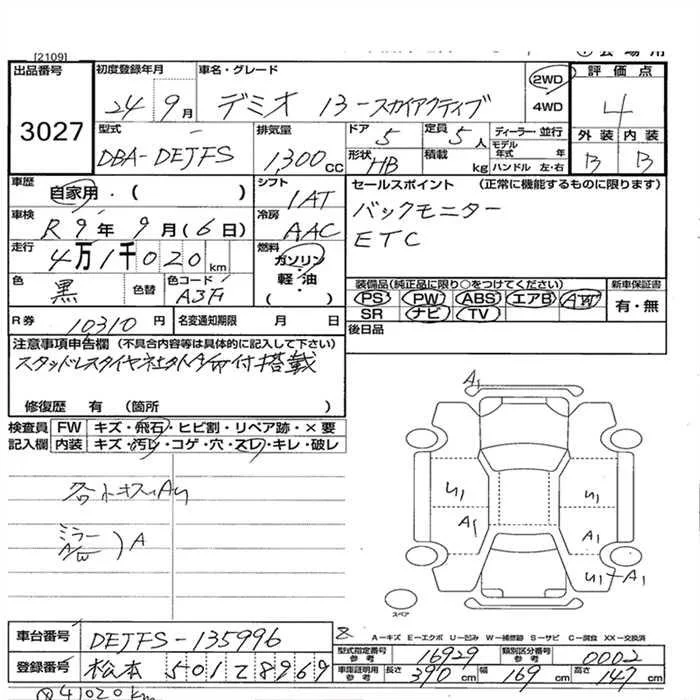 [2109]
出品番号 3027
初度登録年月 24 9月
車名・グレード デミオ 13-スカイアクティブ
2WD
4WD
評価点 4
外装 内装
B B
型式 DBA-DEJFS
排気量 1,300cc
ドア 5
定員 5人
形状 HB
積載 kg
ディーラー・並行
モデル年式 年
ハンドル 左・右
車歴 自家用・( )
シフト 1AT
車検 R9年9月(6日)
冷房 AAC
走行 4万1千020km
燃料 ガソリン・軽油( )
色 黒
色替
色コード A3F
セールスポイント (正常に機能するものに限ります)
バックモニター
ETC
装備品(純正品に限り○をつけてください)
PS PW ABS エアB AW
SR ナビ TV
新車保証書
有・無
R券 10310円
名変通知期限 月 日
後日品
注意事項申告欄 (不具合内容等は具体的に記入して下さい)
スタッドレスタイヤ 4本 付 搭載
修復歴 有 (箇所 )
検査員記入欄
FW キズ・飛石・ヒビ割・リペア跡・×要
内装 キズ・汚レ・コゲ・穴・スレ・キレ・破レ
ミラー
A/W ) A
A1
U1 U1
A1 A1
U1-A1
スペア
A-キズ E-エクボ U-凹み W-補修跡 S-サビ C-腐食 XX-交換済
車台番号 DEJFS-135996
登録番号 松本 501 2 8969
型式指定番号 参考 16929
類別区分番号 参考 0002
車庫証明用 参考 長さ 390cm 幅 169cm 高さ 147cm
41020km